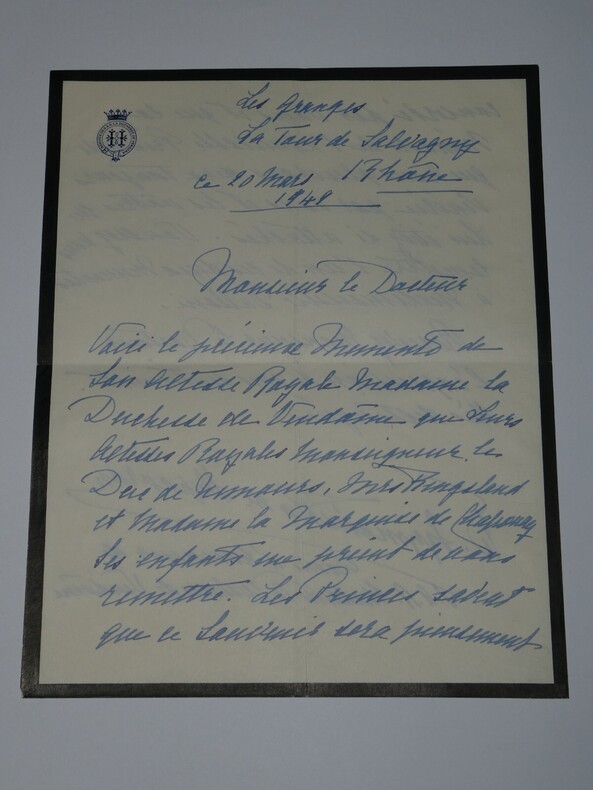 Les Granges
La Tour de Salvagny
Rhône
ce 20 Mars
1949
Monsieur le Docteur
Voici le précieux Memento de
Son Altesse Royale Madame la
Duchesse de Vendôme que Leurs
Altesses Royales Monseigneur le
Duc de Nemours, Mrs Kingsland
et Madame la Marquise de Chaponay
Ses enfants me prient de vous
remettre. Les Princes savent
que ce Souvenir sera pieusement